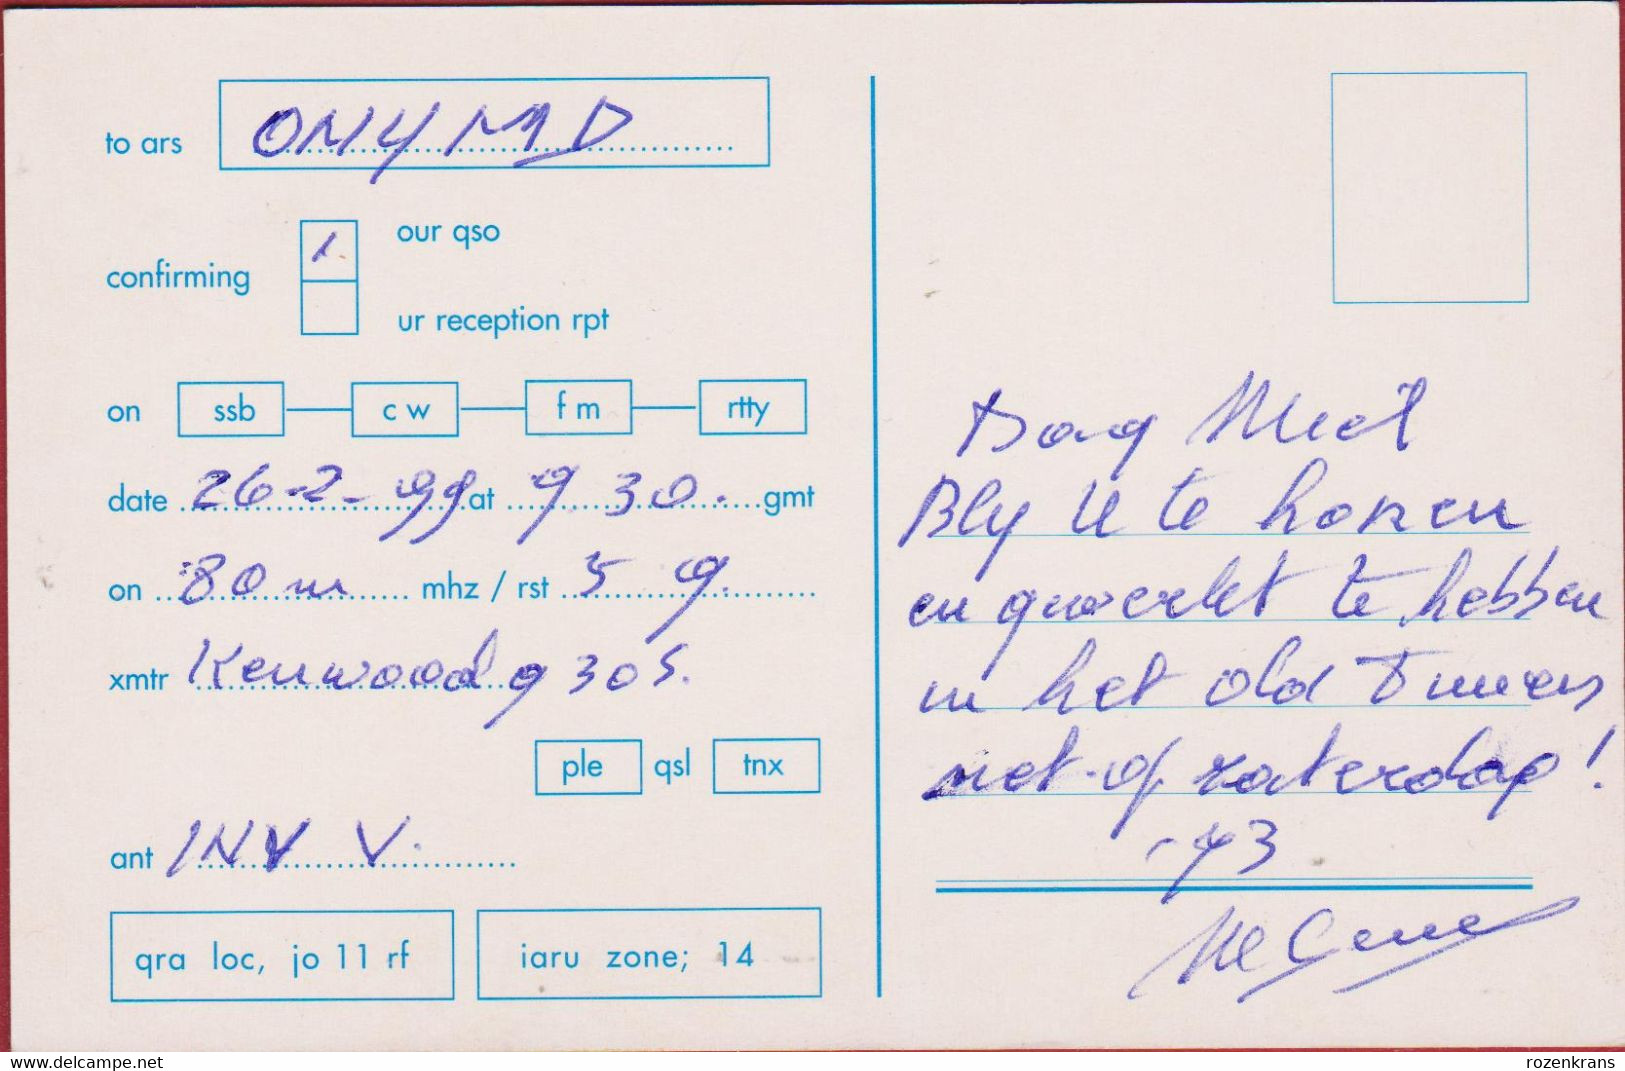 to ars ON4MD
our qso
confirming
ur reception rpt
on ssb cw fm rtty
date 26-2-99 at 9.30. gmt
on 80 m mhz / rst 5 9.
xmtr Kenwood 930S.
ple qsl tnx
ant INV V.
qra loc, jo 11 rf
iaru zone; 14
Dag Miel
Bly U te horen
en gewerkt te hebben
in het old Timers
net op zaterdag!
-73
www.delcampe.net
rozenkrans